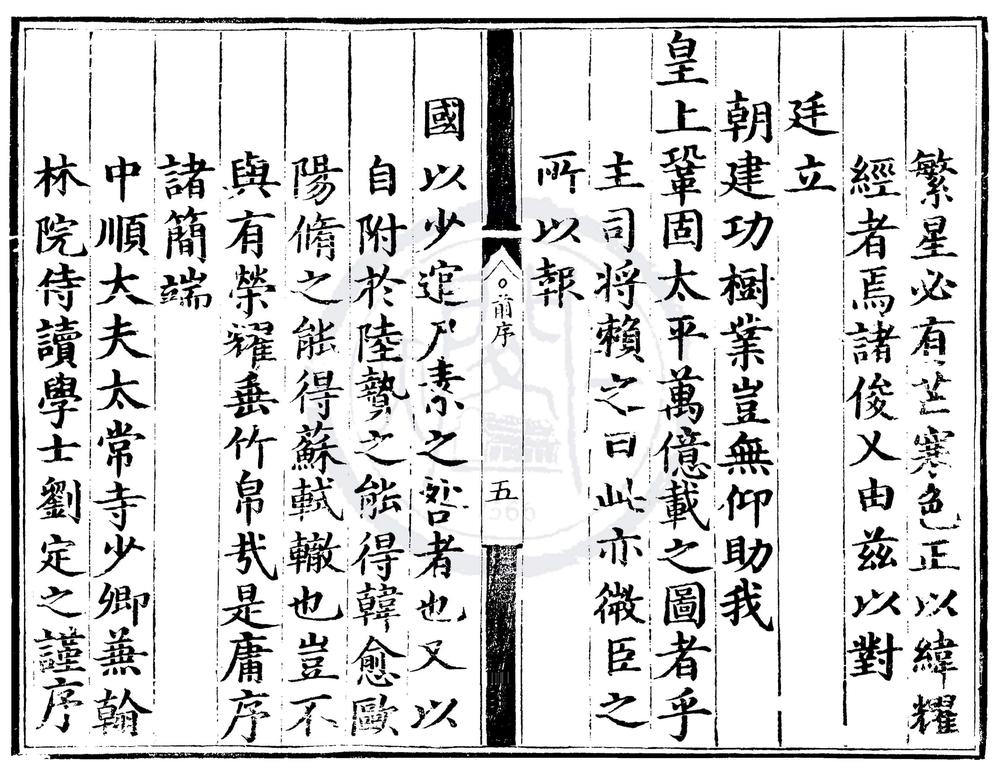 繁星必有芒寒色正以緯耀
經者焉諸俊乂由茲以對
廷立
朝建功樹業豈無仰助我
皇上鞏固太平萬億載之圖者乎
主司將賴之曰此亦微臣之
所以報
前序
五
國以少逭尸素之咎者也又以
自附於陸贄之能得韓愈歐
陽脩之能得蘇軾轍也豈不
與有榮耀垂竹帛哉是庸序
諸簡端
中順大夫太常寺少卿兼翰
林院侍讀學士劉定之謹序